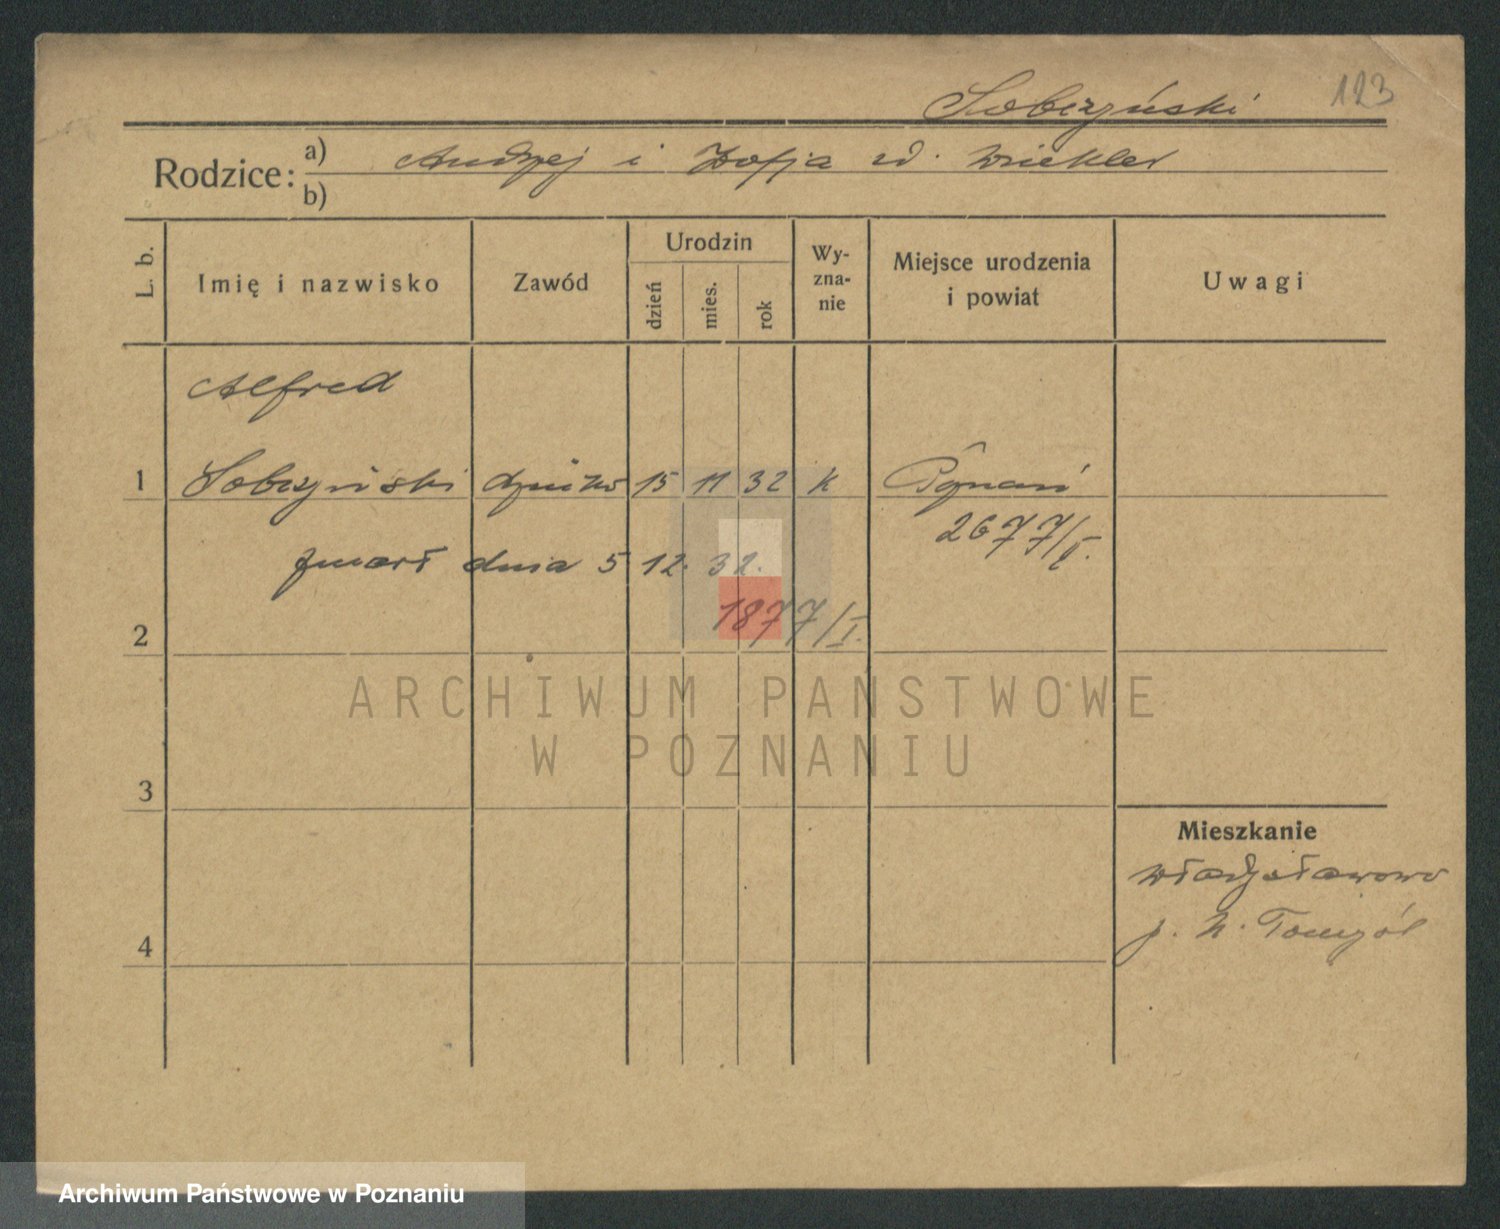 123
Sobczyński
Rodzice:
a) Andrzej i Zofja zd. Winkler
b)
L. b.
Imię i nazwisko
Zawód
Urodzin
dzień
mies.
rok
Wy-
zna-
nie
Miejsce urodzenia
i powiat
Uwagi
Alfred
1 Sobczyński 15 11 32 k Poznań
2677/II.
zmarł dnia 5 12. 32.
1877/I.
2
ARCHIWUM PAŃSTWOWE
W POZNANIU
3
Mieszkanie
Władysławowo
p. N. Tomyśl
4
Archiwum Państwowe w Poznaniu